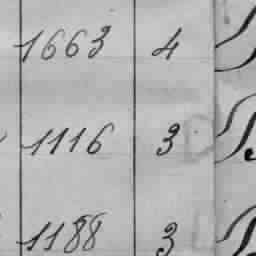 1663 4
1116 3
1188 3